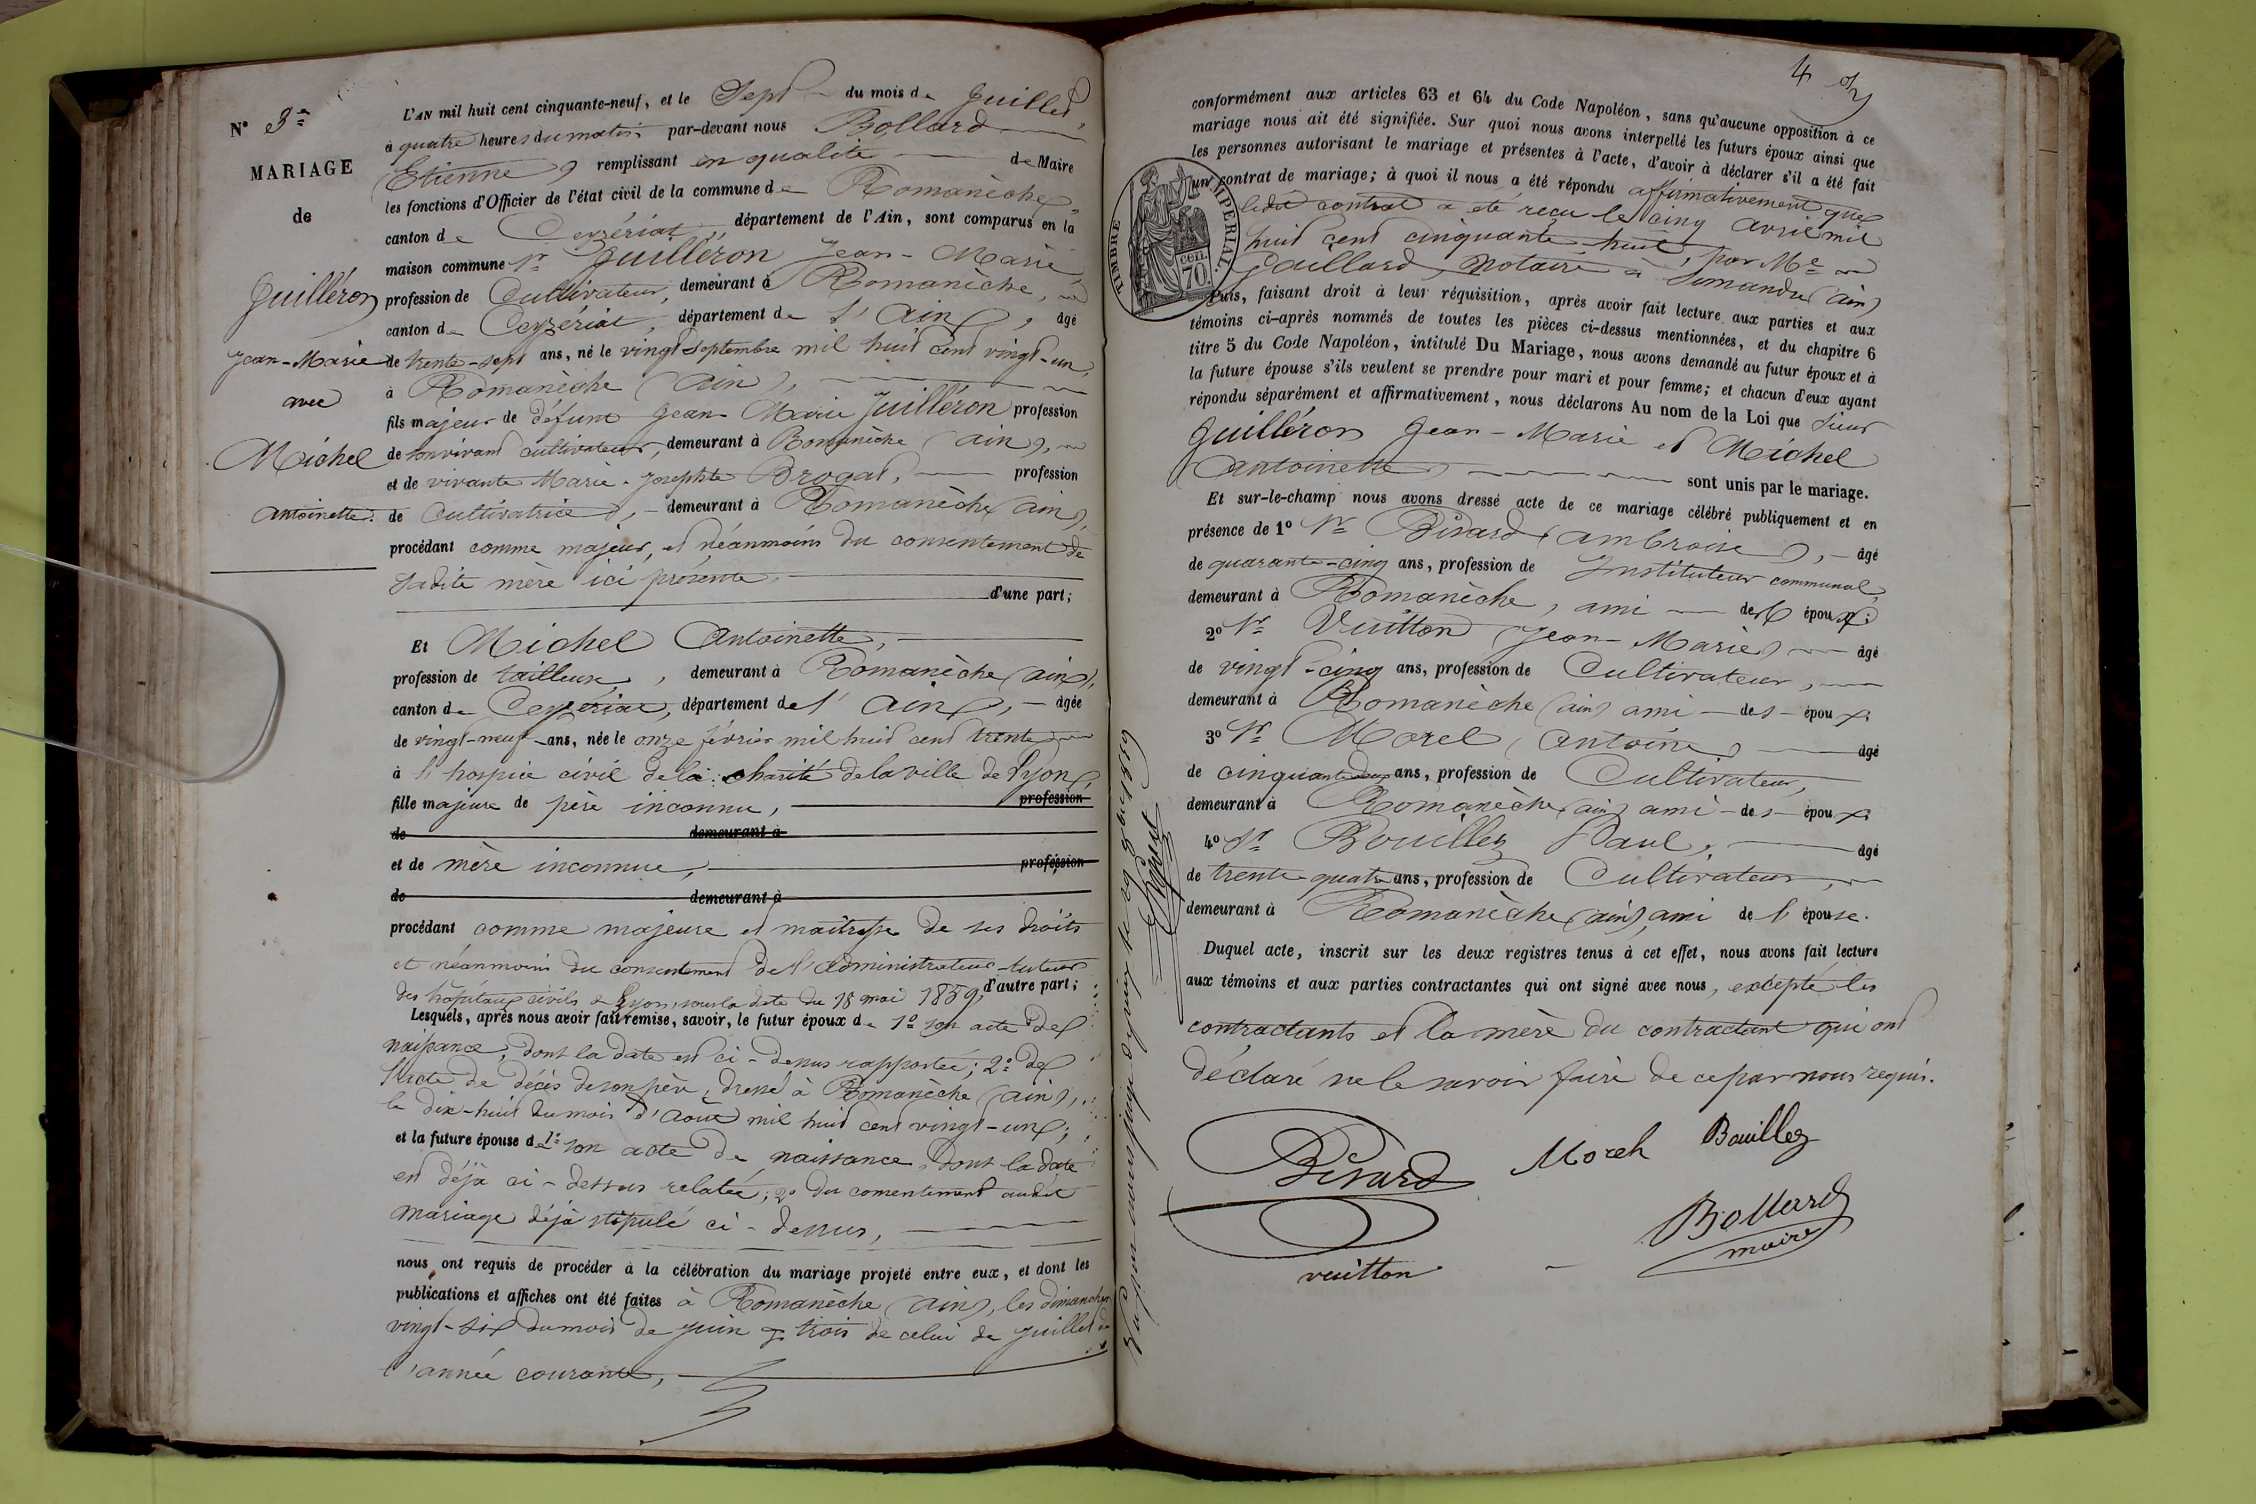 N° 3e
MARIAGE
de
Juilléron
Jean-Marie
avec
Michel
Antoinette.
L'AN mil huit cent cinquante-neuf, et le Sept du mois de Juillet,
à quatre heures du matin par-devant nous Bollard
(Etienne) remplissant en qualité de Maire
les fonctions d'Officier de l'état civil de la commune de Romanèche,
canton de Ceyzériat, département de l'Ain, sont comparus en la
maison commune Sr Juilléron Jean-Marie
profession de Cultivateur, demeurant à Romanèche,
canton de Ceyzériat, département de l'Ain, âgé
de trente-sept ans, né le vingt septembre mil huit cent vingt-un,
à Romanèche (Ain),
fils majeur de défunt Jean-Marie Juilléron profession
de son vivant cultivateur, demeurant à Romanèche (Ain),
et de vivante Marie-Josephte Brogat, profession
de Cultivatrice, demeurant à Romanèche (Ain),
procédant comme majeur, et néanmoins du consentement de
sadite mère ici présente,
d'une part;
Et Michel Antoinette,
profession de tailleuse, demeurant à Romanèche (Ain),
canton de Ceyzériat, département de l'Ain, âgée
de vingt-neuf ans, née le onze février mil huit cent trente
à l'hospice civil de la charité de la ville de Lyon,
fille majeure de père inconnu, profession
de demeurant à
et de mère inconnue, profession
de demeurant à
procédant comme majeure et maîtresse de ses droits
et néanmoins du consentement de l'administrateur-tuteur
des hôpitaux civils de Lyon, sous la date du 18 mai 1859, d'autre part;
Lesquels, après nous avoir fait remise, savoir, le futur époux de 1° son acte de
naissance, dont la date est ci-dessus rapportée; 2° de
l'acte de décès de son père, dressé à Romanèche (Ain),
le dix-huit du mois d'août mil huit cent vingt-un;
et la future épouse de 1° son acte de naissance, dont la date
est déjà ci-dessus relatée; 2° du consentement audit
mariage déjà stipulé ci-dessus,
nous ont requis de procéder à la célébration du mariage projeté entre eux, et dont les
publications et affiches ont été faites à Romanèche (Ain), les dimanches
vingt-six du mois de juin & trois de celui de juillet de
l'année courante,
4
conformément aux articles 63 et 64 du Code Napoléon, sans qu'aucune opposition à ce
mariage nous ait été signifiée. Sur quoi nous avons interpellé les futurs époux ainsi que
les personnes autorisant le mariage et présentes à l'acte, d'avoir à déclarer s'il a été fait
un contrat de mariage; à quoi il nous a été répondu affirmativement que
ledit contrat a été reçu le cinq avril mil
huit cent cinquante-huit, par Me
Gaillard, Notaire à Simandre (ain)
TIMBRE IMPERIAL.
70 cen.
Puis, faisant droit à leur réquisition, après avoir fait lecture aux parties et aux
témoins ci-après nommés de toutes les pièces ci-dessus mentionnées, et du chapitre 6
titre 5 du Code Napoléon, intitulé Du Mariage, nous avons demandé au futur époux et à
la future épouse s'ils veulent se prendre pour mari et pour femme; et chacun d'eux ayant
répondu séparément et affirmativement, nous déclarons Au nom de la Loi que Sieur
Juilléron Jean-Marie et Michel
(Antoinette) sont unis par le mariage.
Et sur-le-champ nous avons dressé acte de ce mariage célébré publiquement et en
présence de 1° Sr Bivard (Ambroise), âgé
de quarante-cinq ans, profession de Instituteur communal,
demeurant à Romanèche, ami de l'époux;
2° Sr Vuitton (Jean-Marie) âgé
de vingt-cinq ans, profession de Cultivateur,
demeurant à Romanèche (ain) ami des époux
3° Sr Morel (Antoine) âgé
de cinquante deux ans, profession de Cultivateur,
demeurant à Romanèche (ain) ami des époux
4° Sr Bouillez Paul, âgé
de trente-quatre ans, profession de Cultivateur,
demeurant à Romanèche (ain), ami de l'épouse.
Duquel acte, inscrit sur les deux registres tenus à cet effet, nous avons fait lecture
aux témoins et aux parties contractantes qui ont signé avec nous, excepté les
contractants et la mère du contractant qui ont
déclaré ne le savoir faire de ce par nous requis.
Bivard Morel Bouillez
Bollard
maire
vuitton